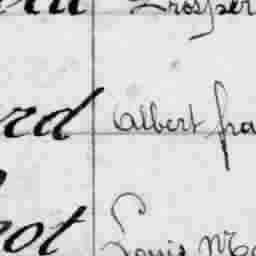 Prosper
rd Albert fra
ot Louis Ma